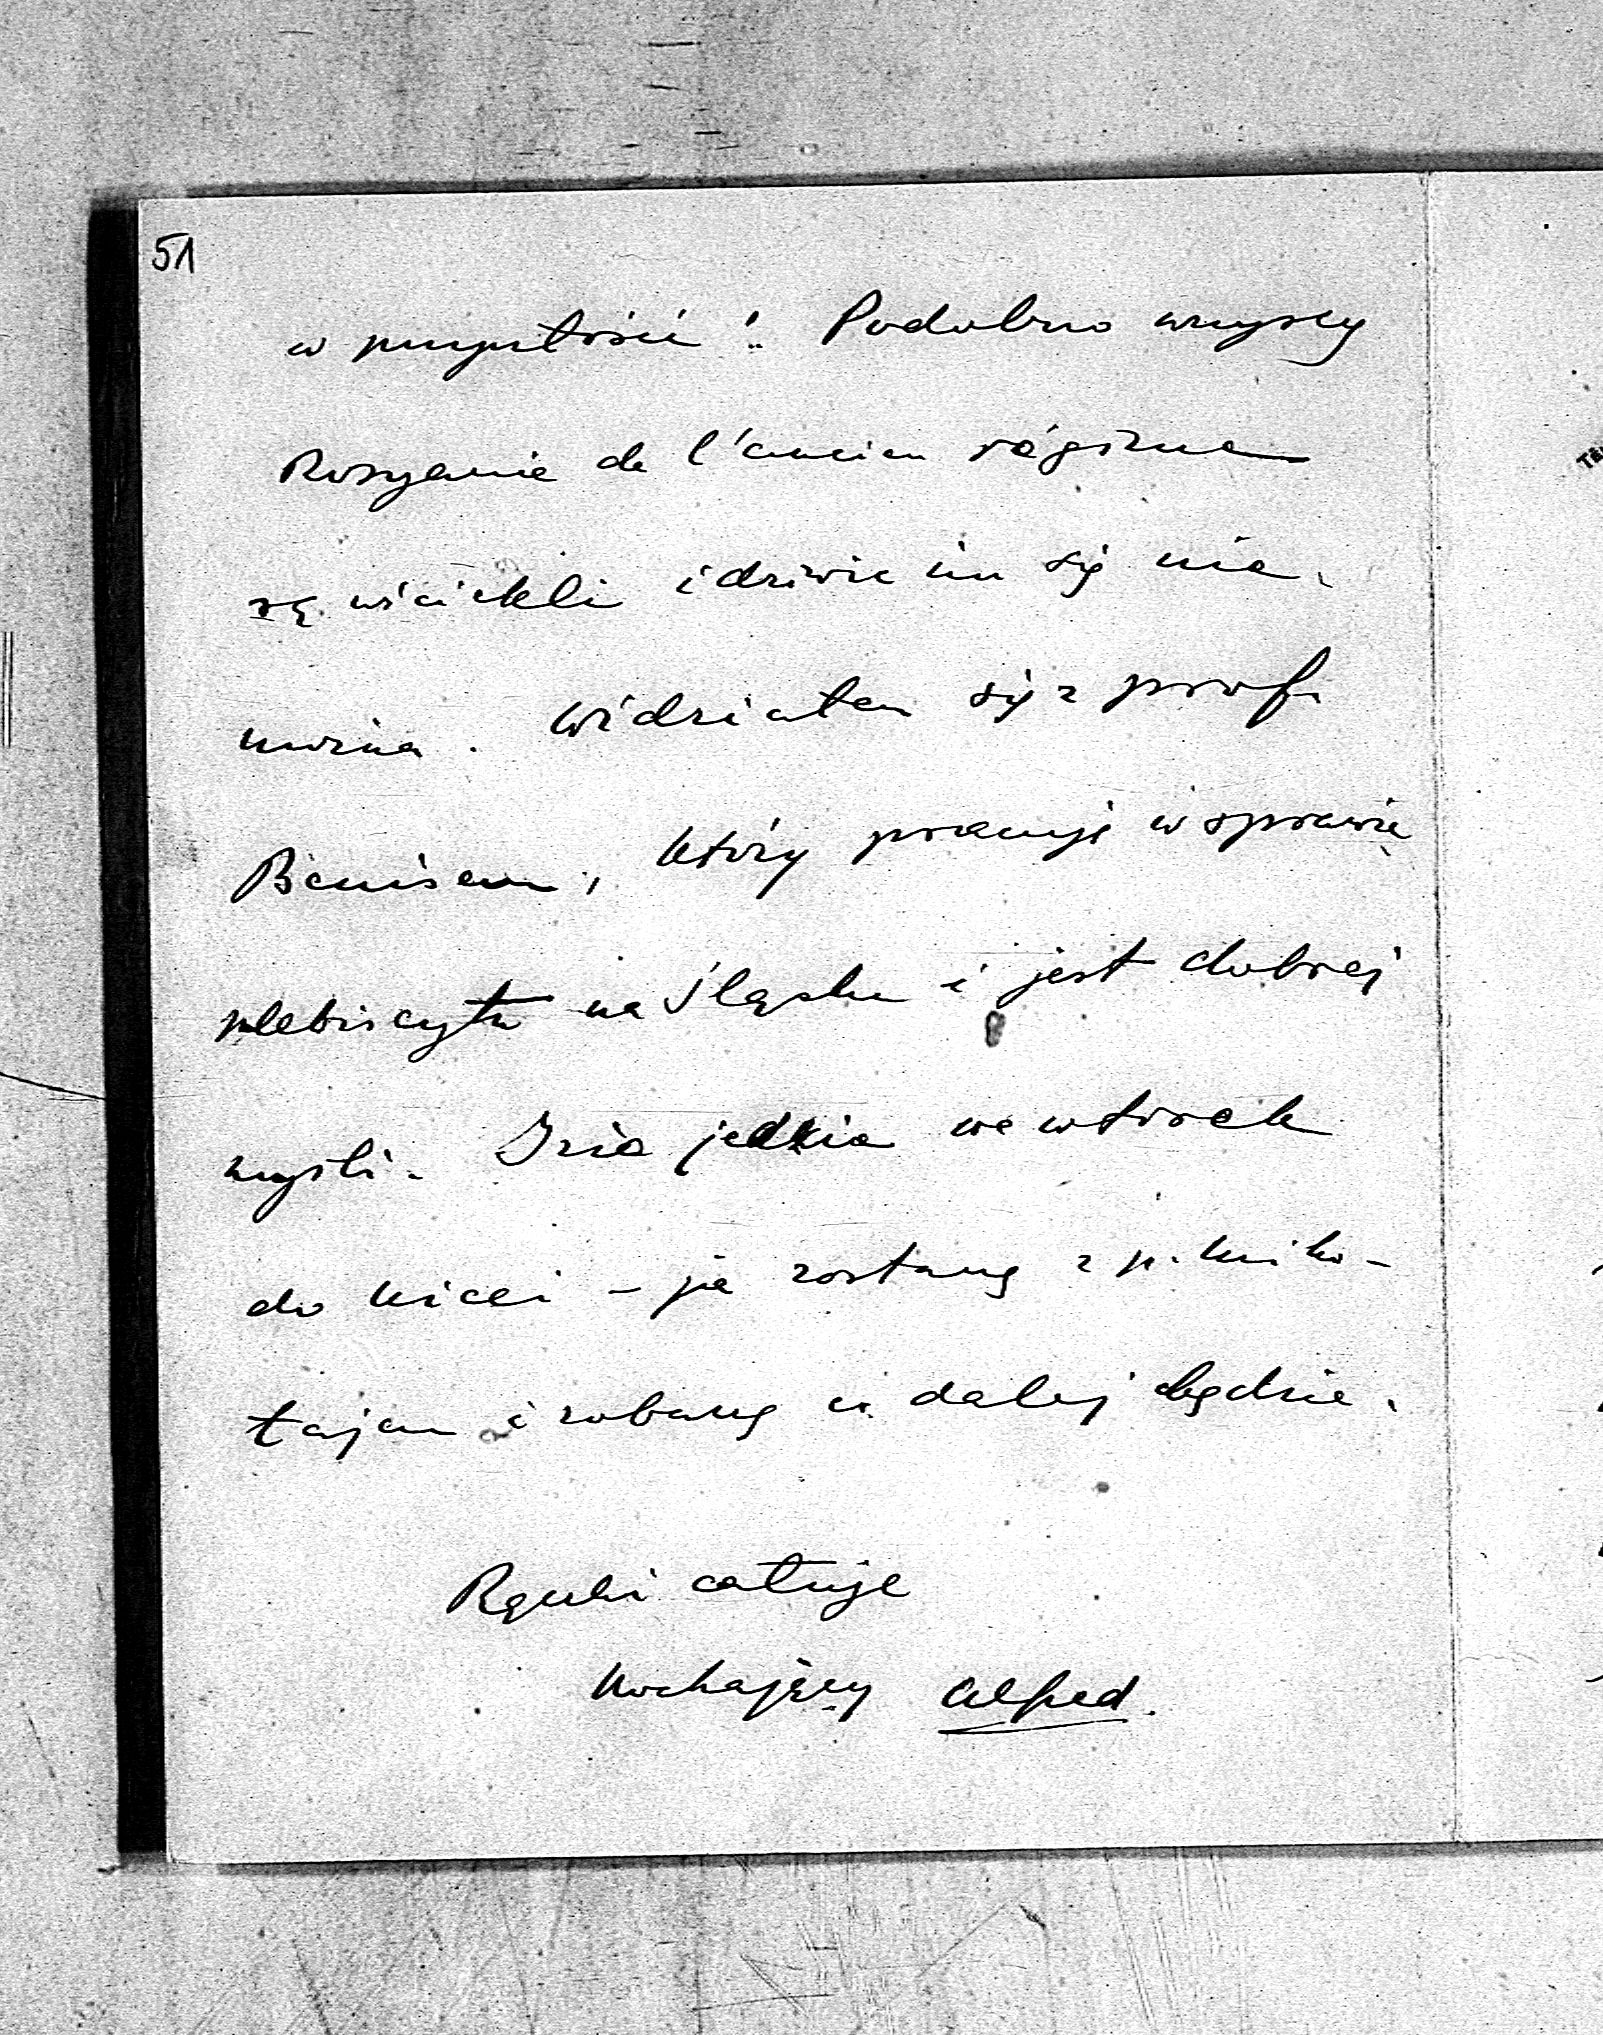 51
w przyszłość! Podobno wszyscy
Rosyanie de l'ancien régime
są wściekli i dziwić im się nie
można. Widziałem się z prof.
Benisem, który pracuje w sprawie
plebiscytu na Śląsku i jest dobrej
myśli. Izia jedzie we wtorek
do Nicei – ja zostanę z p. Miko-
łajem i zobaczę co dalej będzie.
Rączki całuję
Kochający Alfred.